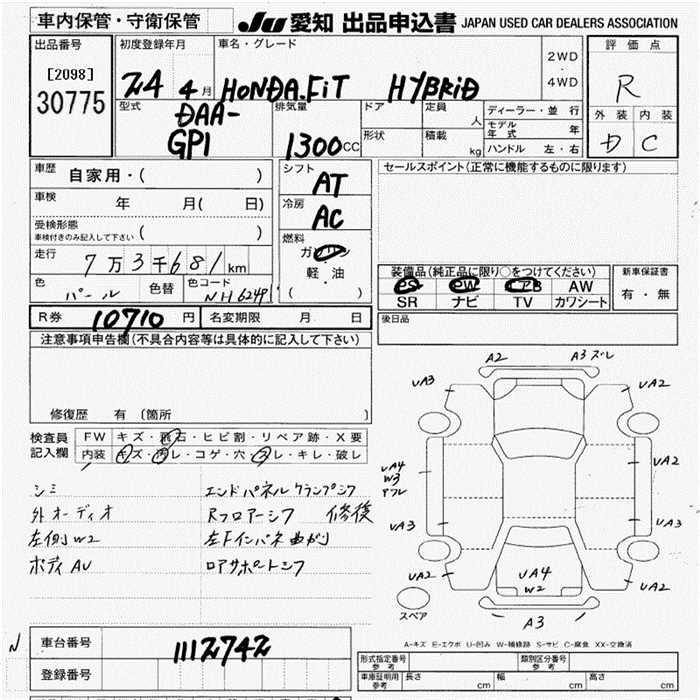 車内保管・守衛保管
JU 愛知 出品申込書 JAPAN USED CAR DEALERS ASSOCIATION
出品番号
[2098]
30775
初度登録年月
24 4月
車名・グレード
HONDA.FiT HYBRiD
2WD
・
4WD
評価点
R
外装 内装
D C
型式
DAA-
GP1
排気量
1300CC
ドア
定員
人
形状
積載
kg
ディーラー・並行
モデル年式 年
ハンドル 左・右
車歴
自家用・( )
車検
年 月( 日)
受検形態
車検付きのみ記入して下さい ( )
走行
7万3千681km
色
パール
色替
色コード
NH624P
シフト
AT
冷房
AC
燃料
ガソリン
・
軽・油
( )
セールスポイント(正常に機能するものに限ります)
装備品(純正品に限り○をつけてください)
PS PW エアB AW
SR ナビ TV カワシート
新車保証書
有・無
後日品
R券 10710円
名変期限 月 日
注意事項申告欄(不具合内容等は具体的に記入して下さい)
修復歴 有 〔箇所 〕
検査員
記入欄
FW キズ・飛石・ヒビ割・リペア跡・X要
内装 キズ・汚レ・コゲ・穴・スレ・キレ・破レ
シミ
外オーディオ
左側W2
ボディAU
エンドパネルクランプシワ
Rフロアーシワ 修復
左Fインパネ曲がり
ロアサポートシワ
A2
A3ズレ
UA3
UA2
UA4
W3
UA2
UA3
UA3
UA2
UA4
W2
UA2
A3
スペア
A-キズ E-エクボ U-凹み W-補修跡 S-サビ C-腐食 XX-交換済
N
車台番号
1112742
登録番号
形式指定番号
参考
類別区分番号
参考
車庫証明用
参考
長さ cm
幅 cm
高さ cm